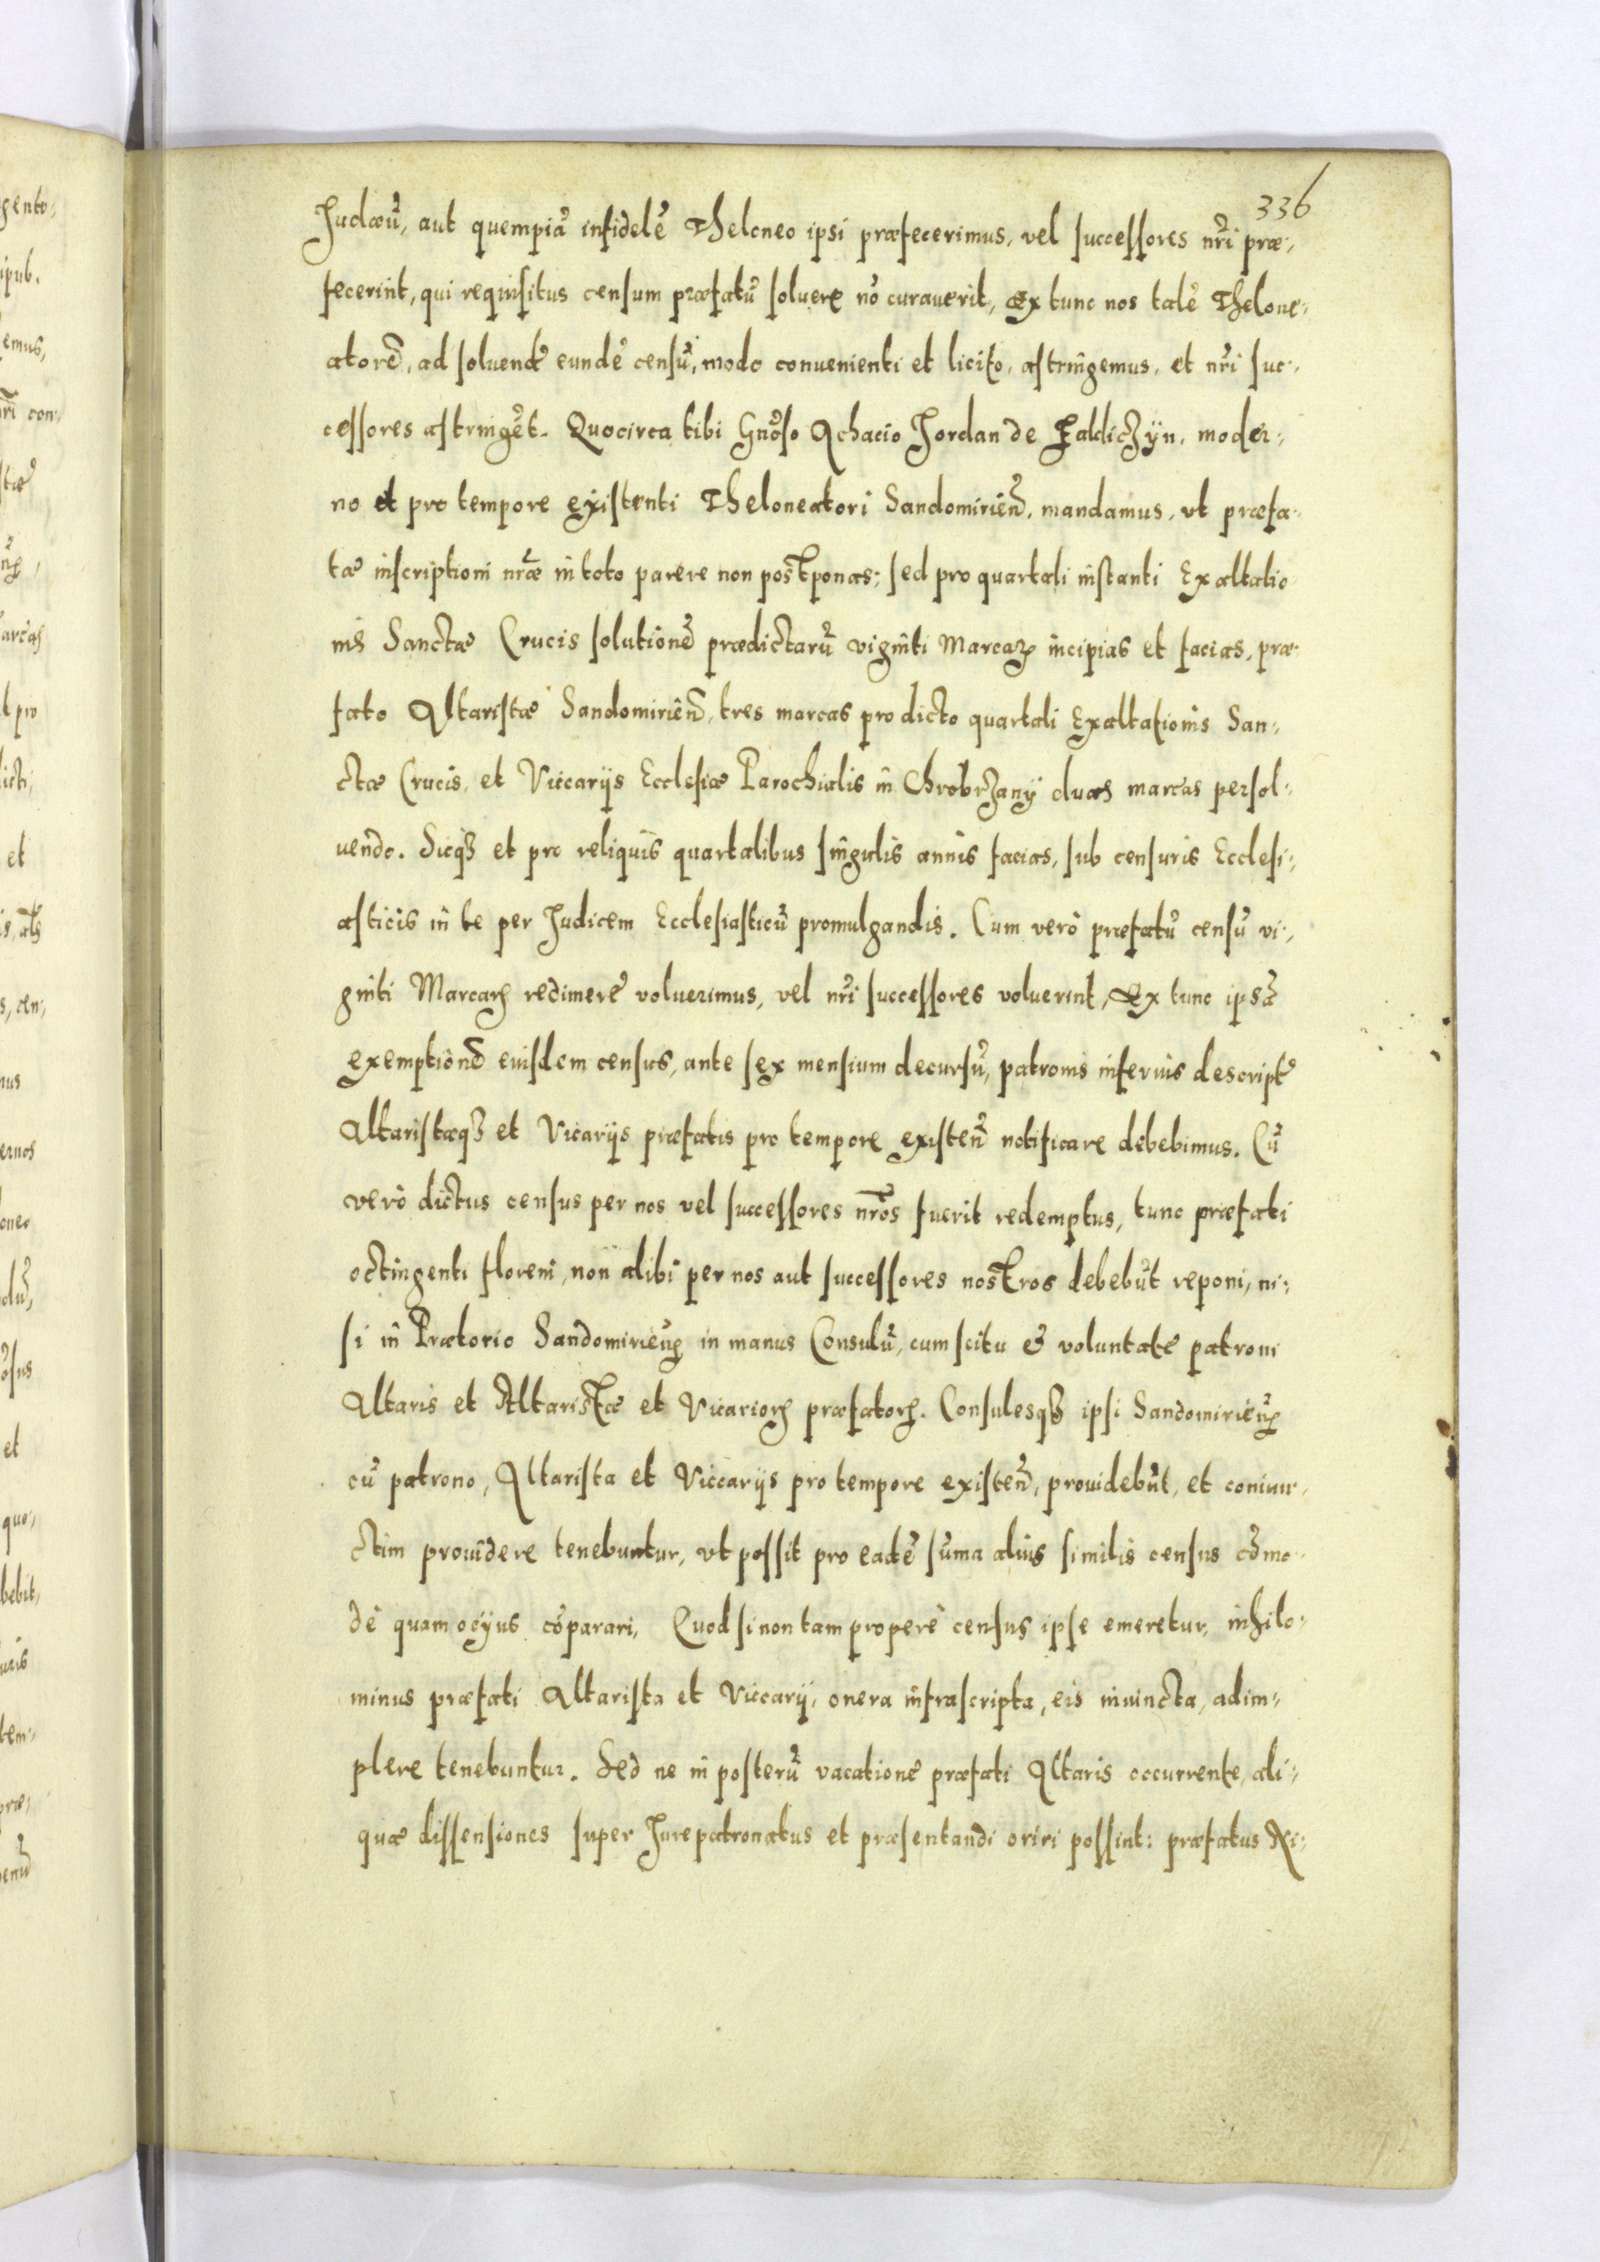 336
Judæũ, aut quempiã infidelẽ Theloneo ipsi præfecerimus, vel successores nr̃i præ-
fecerint, qui requisitus censum præfatũ soluere nõ curauerit, Ex tunc nos talẽ Thelone-
atorẽ, ad soluendũ eundẽ censũ, modo conuenienti et licito, astringemus, et nr̃i suc-
cessores astringẽt. Quocirca tibi Gnõso Achacio Jordan de Zaklicżyn, moder-
no et pro tempore existenti Theloneatori Sandomirieñ, mandamus, vt præfa-
tæ inscriptioni nr̃æ in toto parere non postponas; sed pro quartali instanti Exaltatio
nis Sanctæ Crucis solutionẽ prædictarũ viginti Marcaꝝ incipias et facias, præ-
fato Altaristæ Sandomirieñ, tres marcas pro dicto quartali Exaltationis San-
ctæ Crucis, et Viccarijs Ecclesiæ Parochialis in Chrobrzany duas marcas persol-
uendo. Sicqꝫ et pro reliquis quartalibus singulis annis facias, sub censuris Ecclesi-
asticis in te per Judicem Ecclesiasticũ promulgandis. Cum verò præfatũ censũ vi-
ginti Marcaꝝ redimere voluerimus, vel nr̃i successores voluerint, Ex tunc ipsã
exemptionẽ euisdem census, ante sex mensium decursũ, patronis inferius descript̃
Altaristæqꝫ et Vicarijs præfatis pro tempore existeñ notificare debebimus. Cũ
verò dictus census per nos vel successores nr̃os fuerit redemptus, tunc præfati
octingenti floreni, non alibi per nos aut successores nostros debebũt reponi, ni-
si in Prætorio Sandomirieñ in manus Consulũ, cum scitu & voluntate patroni
Altaris et Altaristæ et Vicarioꝝ præfatoꝝ. Consulesqꝫ ipsi Sandomirieñ
cũ patrono, Altarista et Viccarijs pro tempore existeñ, prouidebũt, et coniun-
ctim prouidere tenebuntur, vt possit pro eadẽ sũma alius similis census cõmo-
dè quam ocyus cõparari, Quod si non tam properè census ipse emeretur, nihilo-
minus præfati Altarista et Viccarij, onera infrascripta, eis iniuncta, adim-
plere tenebuntur. Sed ne in posterũ vacatione præfati Altaris occurrente, ali-
quæ dissensiones super Jurepatronatus et præsentandi oriri possint: præfatus Ni-